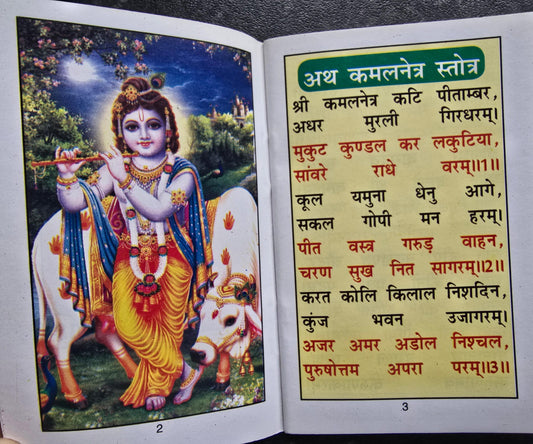 अथ कमलनेत्र स्तोत्र
श्री कमलनेत्र कटि पीताम्बर,
अधर मुरली गिरधरम्।
मुकुट कुण्डल कर लकुटिया,
सांवरे राधे वरम्॥1॥
कूल यमुना धेनु आगे,
सकल गोपी मन हरम्।
पीत वस्त्र गरुड़ वाहन,
चरण सुख नित सागरम्॥2॥
करत कोलि किलाल निशदिन,
कुंज भवन उजागरम्।
अजर अमर अडोल निश्चल,
पुरुषोत्तम अपरा परम्॥3॥
2
3